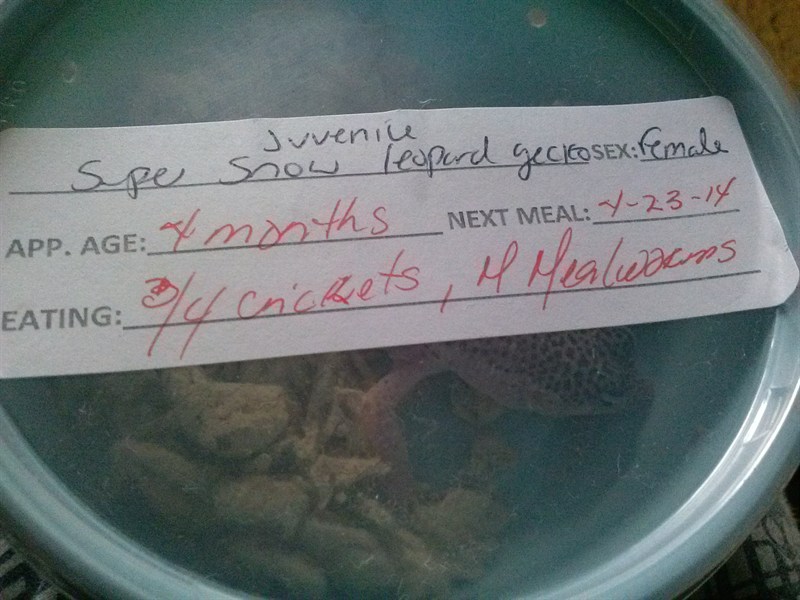 Juvenile
Super Snow leopard gecko SEX: Female
APP. AGE: 4 months NEXT MEAL: 4-23-14
EATING: 3/4 crickets, M Mealworms